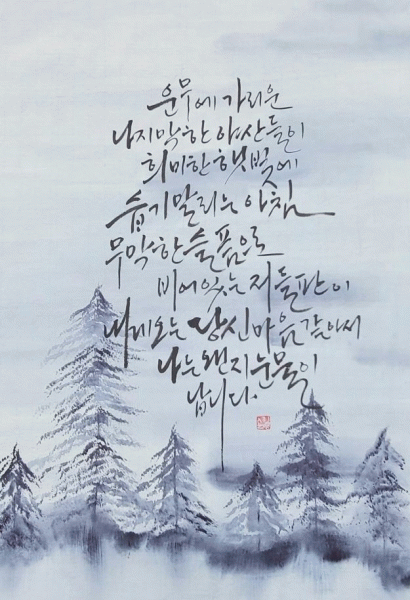 운무에 가리운
나지막한 야산들이
희미한 햇빛에
습기 말리는 아침
무막한 슬픔으로
비어있는 저 들판이
내게오는 당신 마음 같아서
나는 왠지 눈물이
납니다.